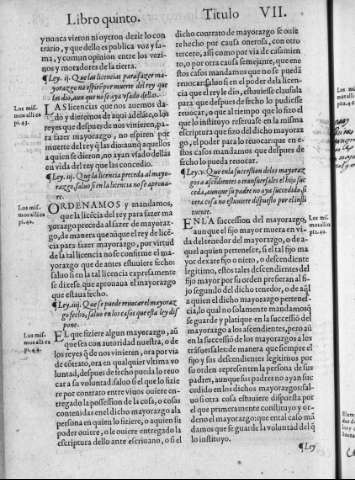 Libro quinto.
Titulo VII.
y nunca vieron ni oyeron dezir lo con
trario, y que dello es publica voz y fa-
ma, y comun opinion entre los vezi-
nos y moradores de la tierra.
¶Ley. ij. Que las licencias para fazer ma-
yorazgo no espiren por muerte del rey que
las dio, aun que no se aya vsado dellas.
Los mis
mos alli ca
pi. 43.
LAS licencias que nos auemos da-
do y dieremos de aqui adelãte, o los
reyes que despues de nos vinieren, pa-
ra fazer mayorazgo, no espiren por
muerte del rey q̃ las dio aunq̃ aquellos
a quien se dieron, no ayan vsado dellas
en vida del rey que las concedio.
¶Ley. iij. Que la licencia preceda al mayo-
razgo, saluo si en la licencia no se aproua-
re.
Los mis-
mos alli ca
pi. 42.
ORDENAMOS y mandamos,
que la licẽcia del rey para fazer ma
yorazgo preceda al fazer de mayoraz-
go, de manera que aũque el rey de licẽ-
cia para fazer mayorazgo, por virtud
de la tal licencia no se confirme el ma
yorazgo que de antes estuuiere fecho:
saluo si en la tal licencia expressamente
se dixere que aprouaua el mayorazgo
que estaua fecho.
¶Ley. iiij. Que se puede reuocar el mayoraz
go fecho, saluo en los casos que esta ley dis
pone.
Los mis-
mos alli ca
pi. 44.
EL que fiziere algun mayorazgo, aũ
que sea con autoridad nuestra, o de
los reyes q̃ de nos vinieren, ora por via
de cõtrato, ora en qualquier vltima vo
luntad, despues de fecho pueda lo reuo
car a su voluntad, saluo si el que lo fizie
re por contrato entre viuos ouiere en-
tregado la possession de la cosa, o cosas
contenidas en el dicho mayorazgo a la
persona en quien lo fiziere, o a quien su
poder ouiere, o le ouiere entregado la
escriptura dello ante escriuano, o si el
dicho contrato de mayorazgo se ouie
re hecho por causa onerosa, con otro
tercero, assi como por via de casamien
to, o por otra causa semejante, que ene
stos casos mandamos que no se pueda
reuocar, saluo si en el poder dela licẽcia
que el rey le dio, estuuiesse clausula
para que despues de fecho lo pudiesse
reuocar, o que al tiempo que lo fizo el
que lo instituyo reseruasse en la misma
escriptura que fizo del dicho mayoraz
go, el poder para lo reuocar: que en
estos casos mandamos que despues de
fecho lo pueda reuocar.
¶Ley. v. Que en la succession del mayoraz
go a ascendientes o transuersales el hijo suc
ceda, aunque su padre no aya succedido, si
otra cosa no estuuiere dispuesto por el insti
tuente.
Los mis-
mos alli ca
pi. 40.
EN LA succession del mayorazgo,
aunque el fijo mayor muera en vi-
da del tenedor del mayorazgo, o de a-
quel a quien pertenesce, si el tal fijo ma
yor dexare fijo o nieto, o descendiente
legitimo, estos tales descendientes del
fijo mayor por su orden prefieran al fi
jo segundo del dicho tenedor, o de aq̃l
a quien el dicho mayorazgo pertenes-
cia, lo qual no solamente mandamos q̃
se guarde y platique en la successiõ del
mayorazgo a los ascendientes, pero aũ
en la successiõ de los mayorazgos a los
trãsuersales: de manera que siempre el
fijo y sus descendientes legitimos por
su orden representen la persona de sus
padres, aunque sus padres no ayan suc
cedido en los dichos mayorazgos: sal-
uo si otra cosa estuuiere dispuesta por
el que primeramente constituyo y or-
deno el mayorazgo: que en tal caso mã
damos que se guarde la voluntad del q̃
lo instituyo.
¶Ley